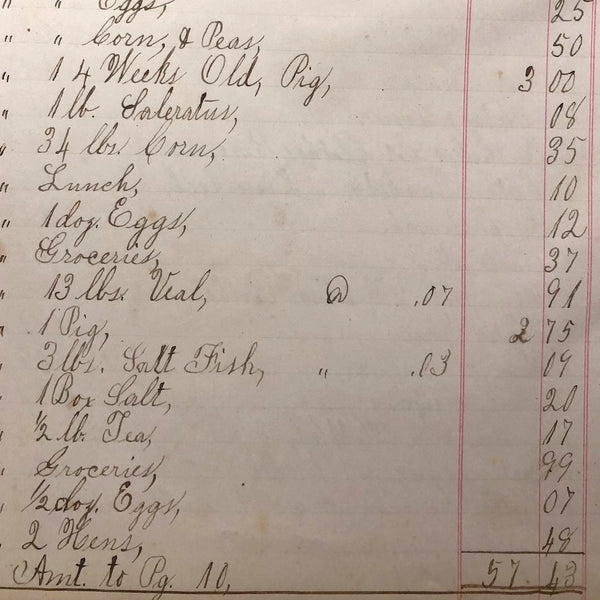 " " Eggs, 25
" " Corn, & Peas, 50
" 1 4 Weeks Old, Pig, 3 00
" 1 lb. Saleratus, 08
" 34 lbs. Corn, 35
" Lunch, 10
" 1 doz. Eggs, 12
" Groceries, 37
" 13 lbs. Veal, @ .07 91
" 1 Pig, 2 75
" 3 lbs. Salt Fish, " .03 09
" 1 Box Salt, 20
" ½ lb. Tea, 17
" Groceries, 99
" ½ doz. Eggs, 07
" 2 Hens, 48
Amt. to Pg. 10, 57. 43